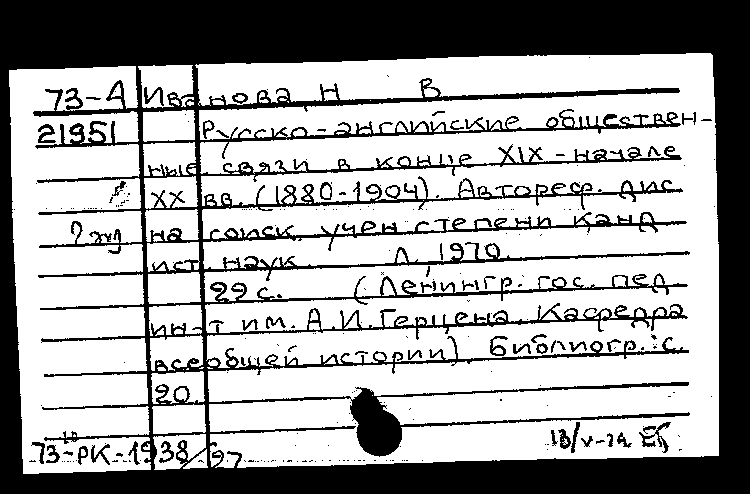 73-А Иванова, Н В
21951 Русско-английские обществен-
ные связи в конце XIX - начале
XX вв. (1880-1904). Автореф. дис
2 экз на соиск. учен степени канд
ист. наук. Л., 1970.
29 с. (Ленингр. гос. пед.
ин-т им. А.И. Герцена. Кафедра
всеобщей истории). Библиогр.: с.
20.
73-РК-1938/97